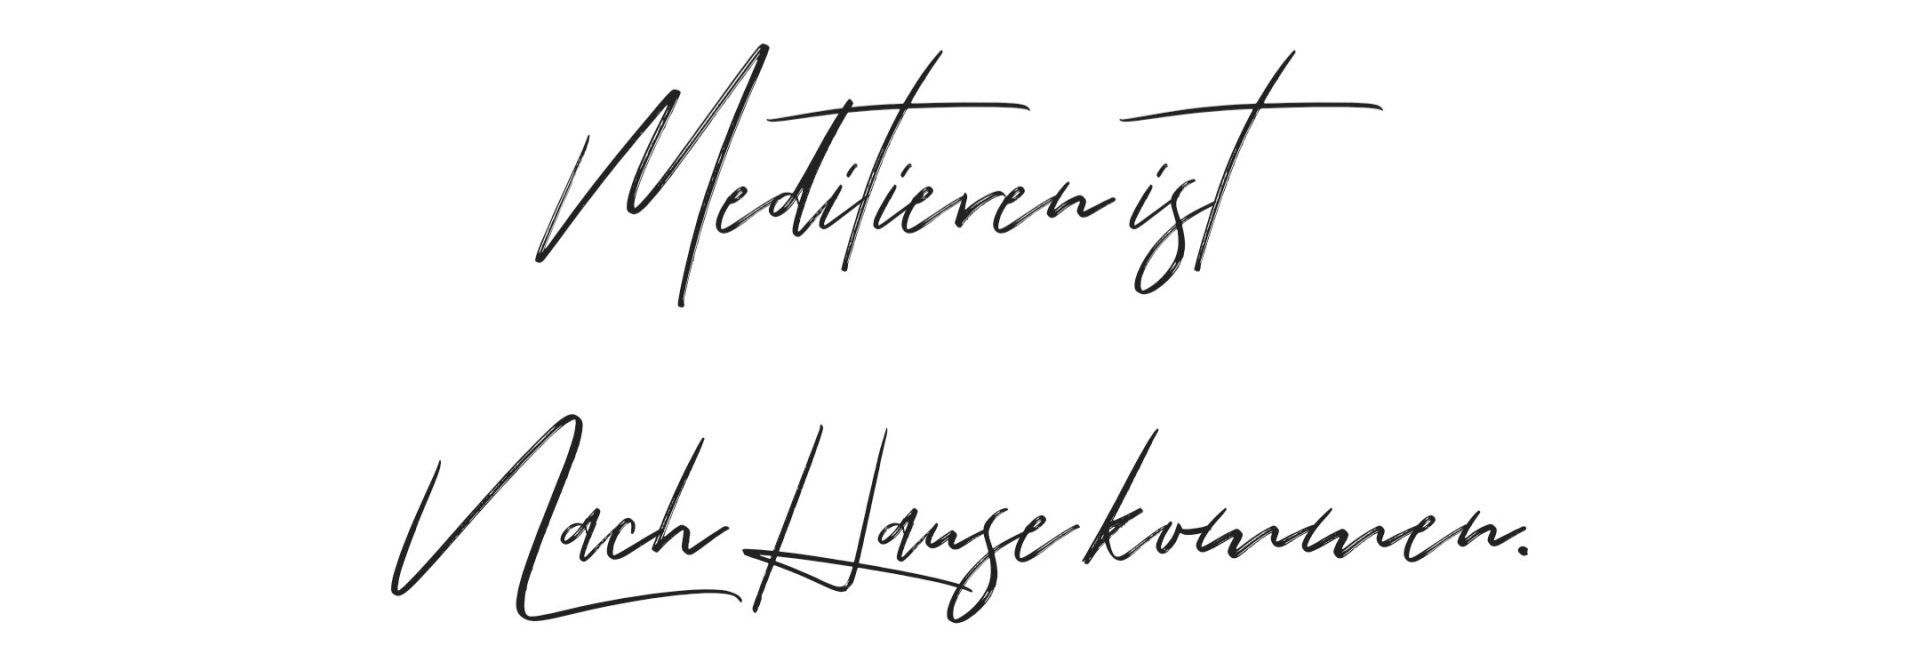 Meditieren ist
Nach Hause kommen.